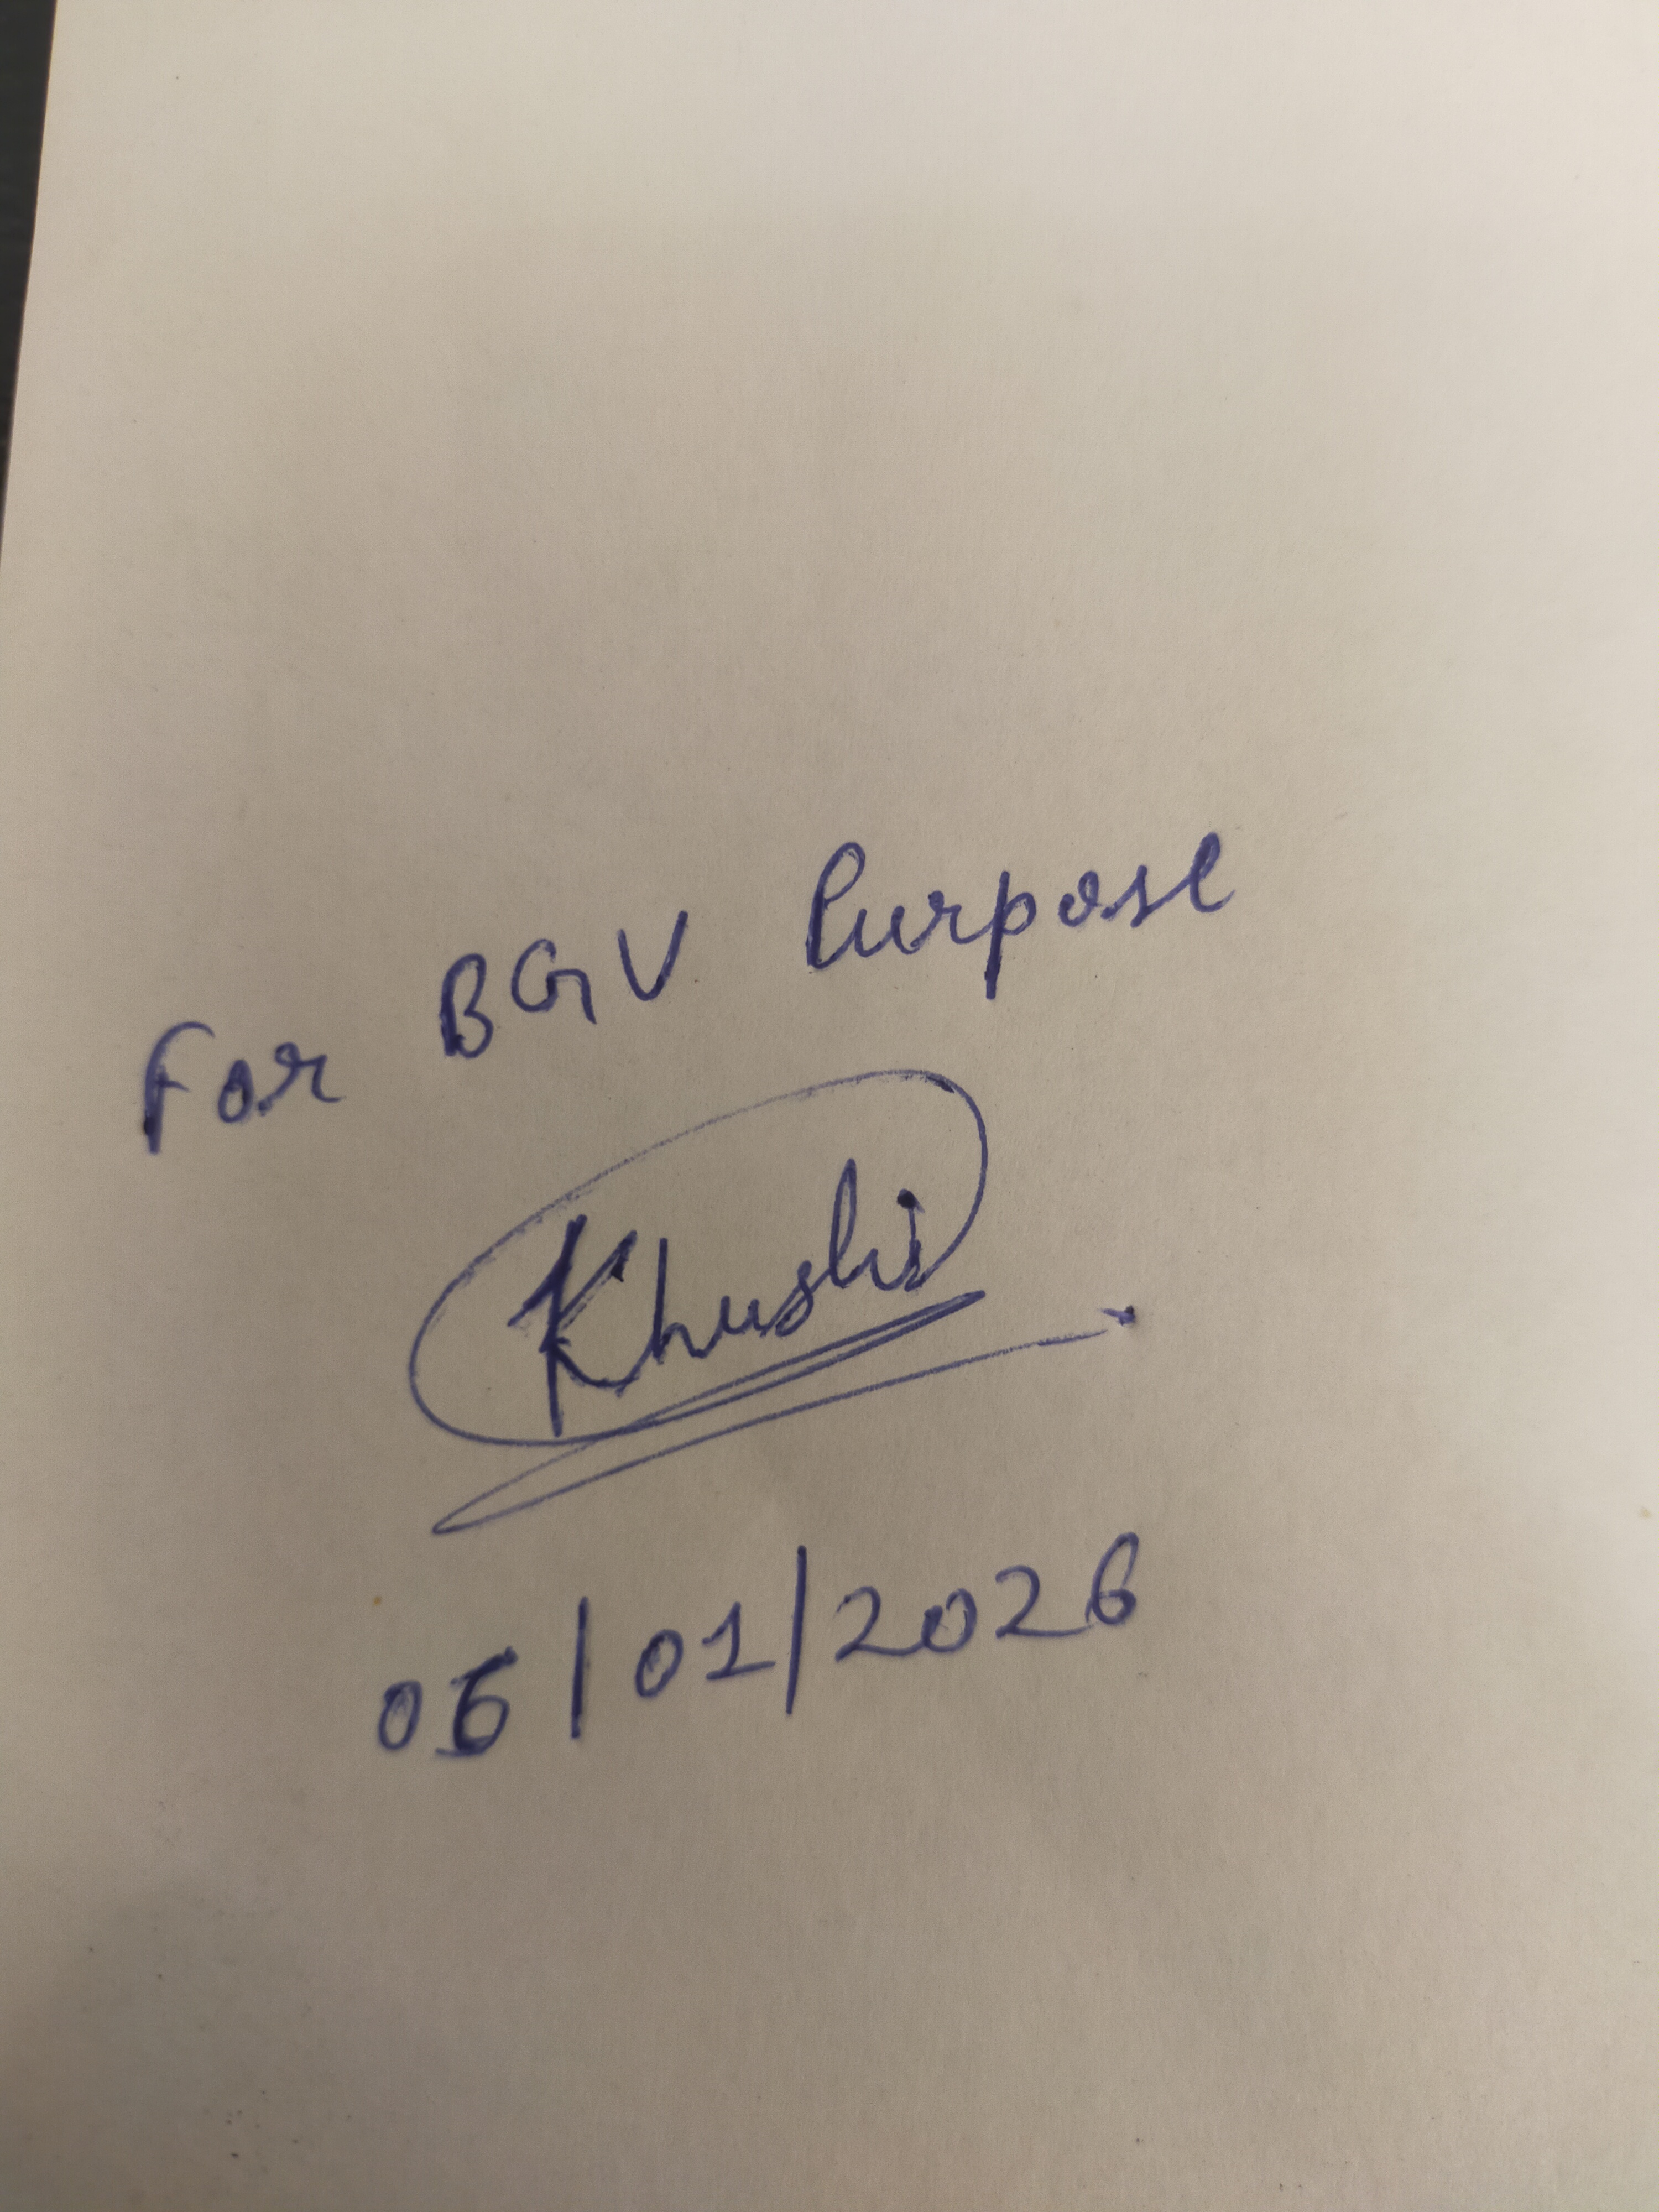 For BGV Purpose
Khushi
06/01/2026